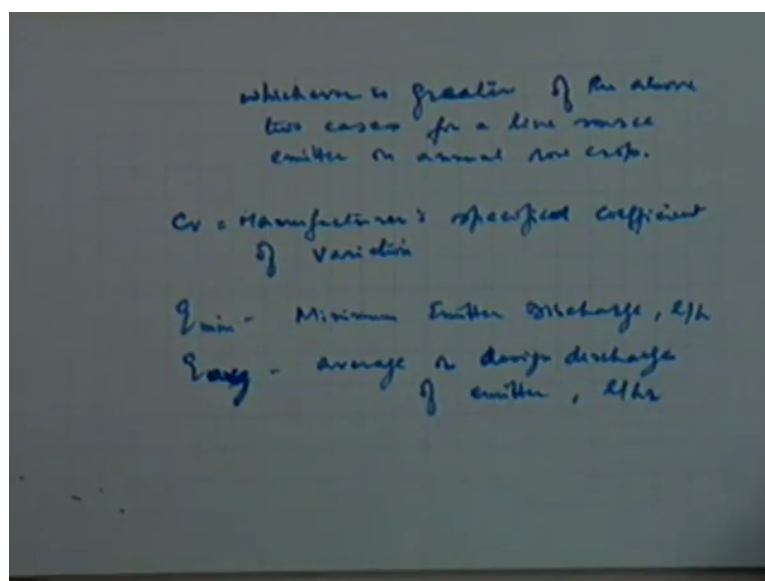 whichever is greater of the above
two cases for a line source
emitter on annual row crop.
Cv = Manufacturer's specified coefficient
of variation
qmin - Minimum Emitter Discharge, l/h
qavg - average or design discharge
of emitter, l/hr